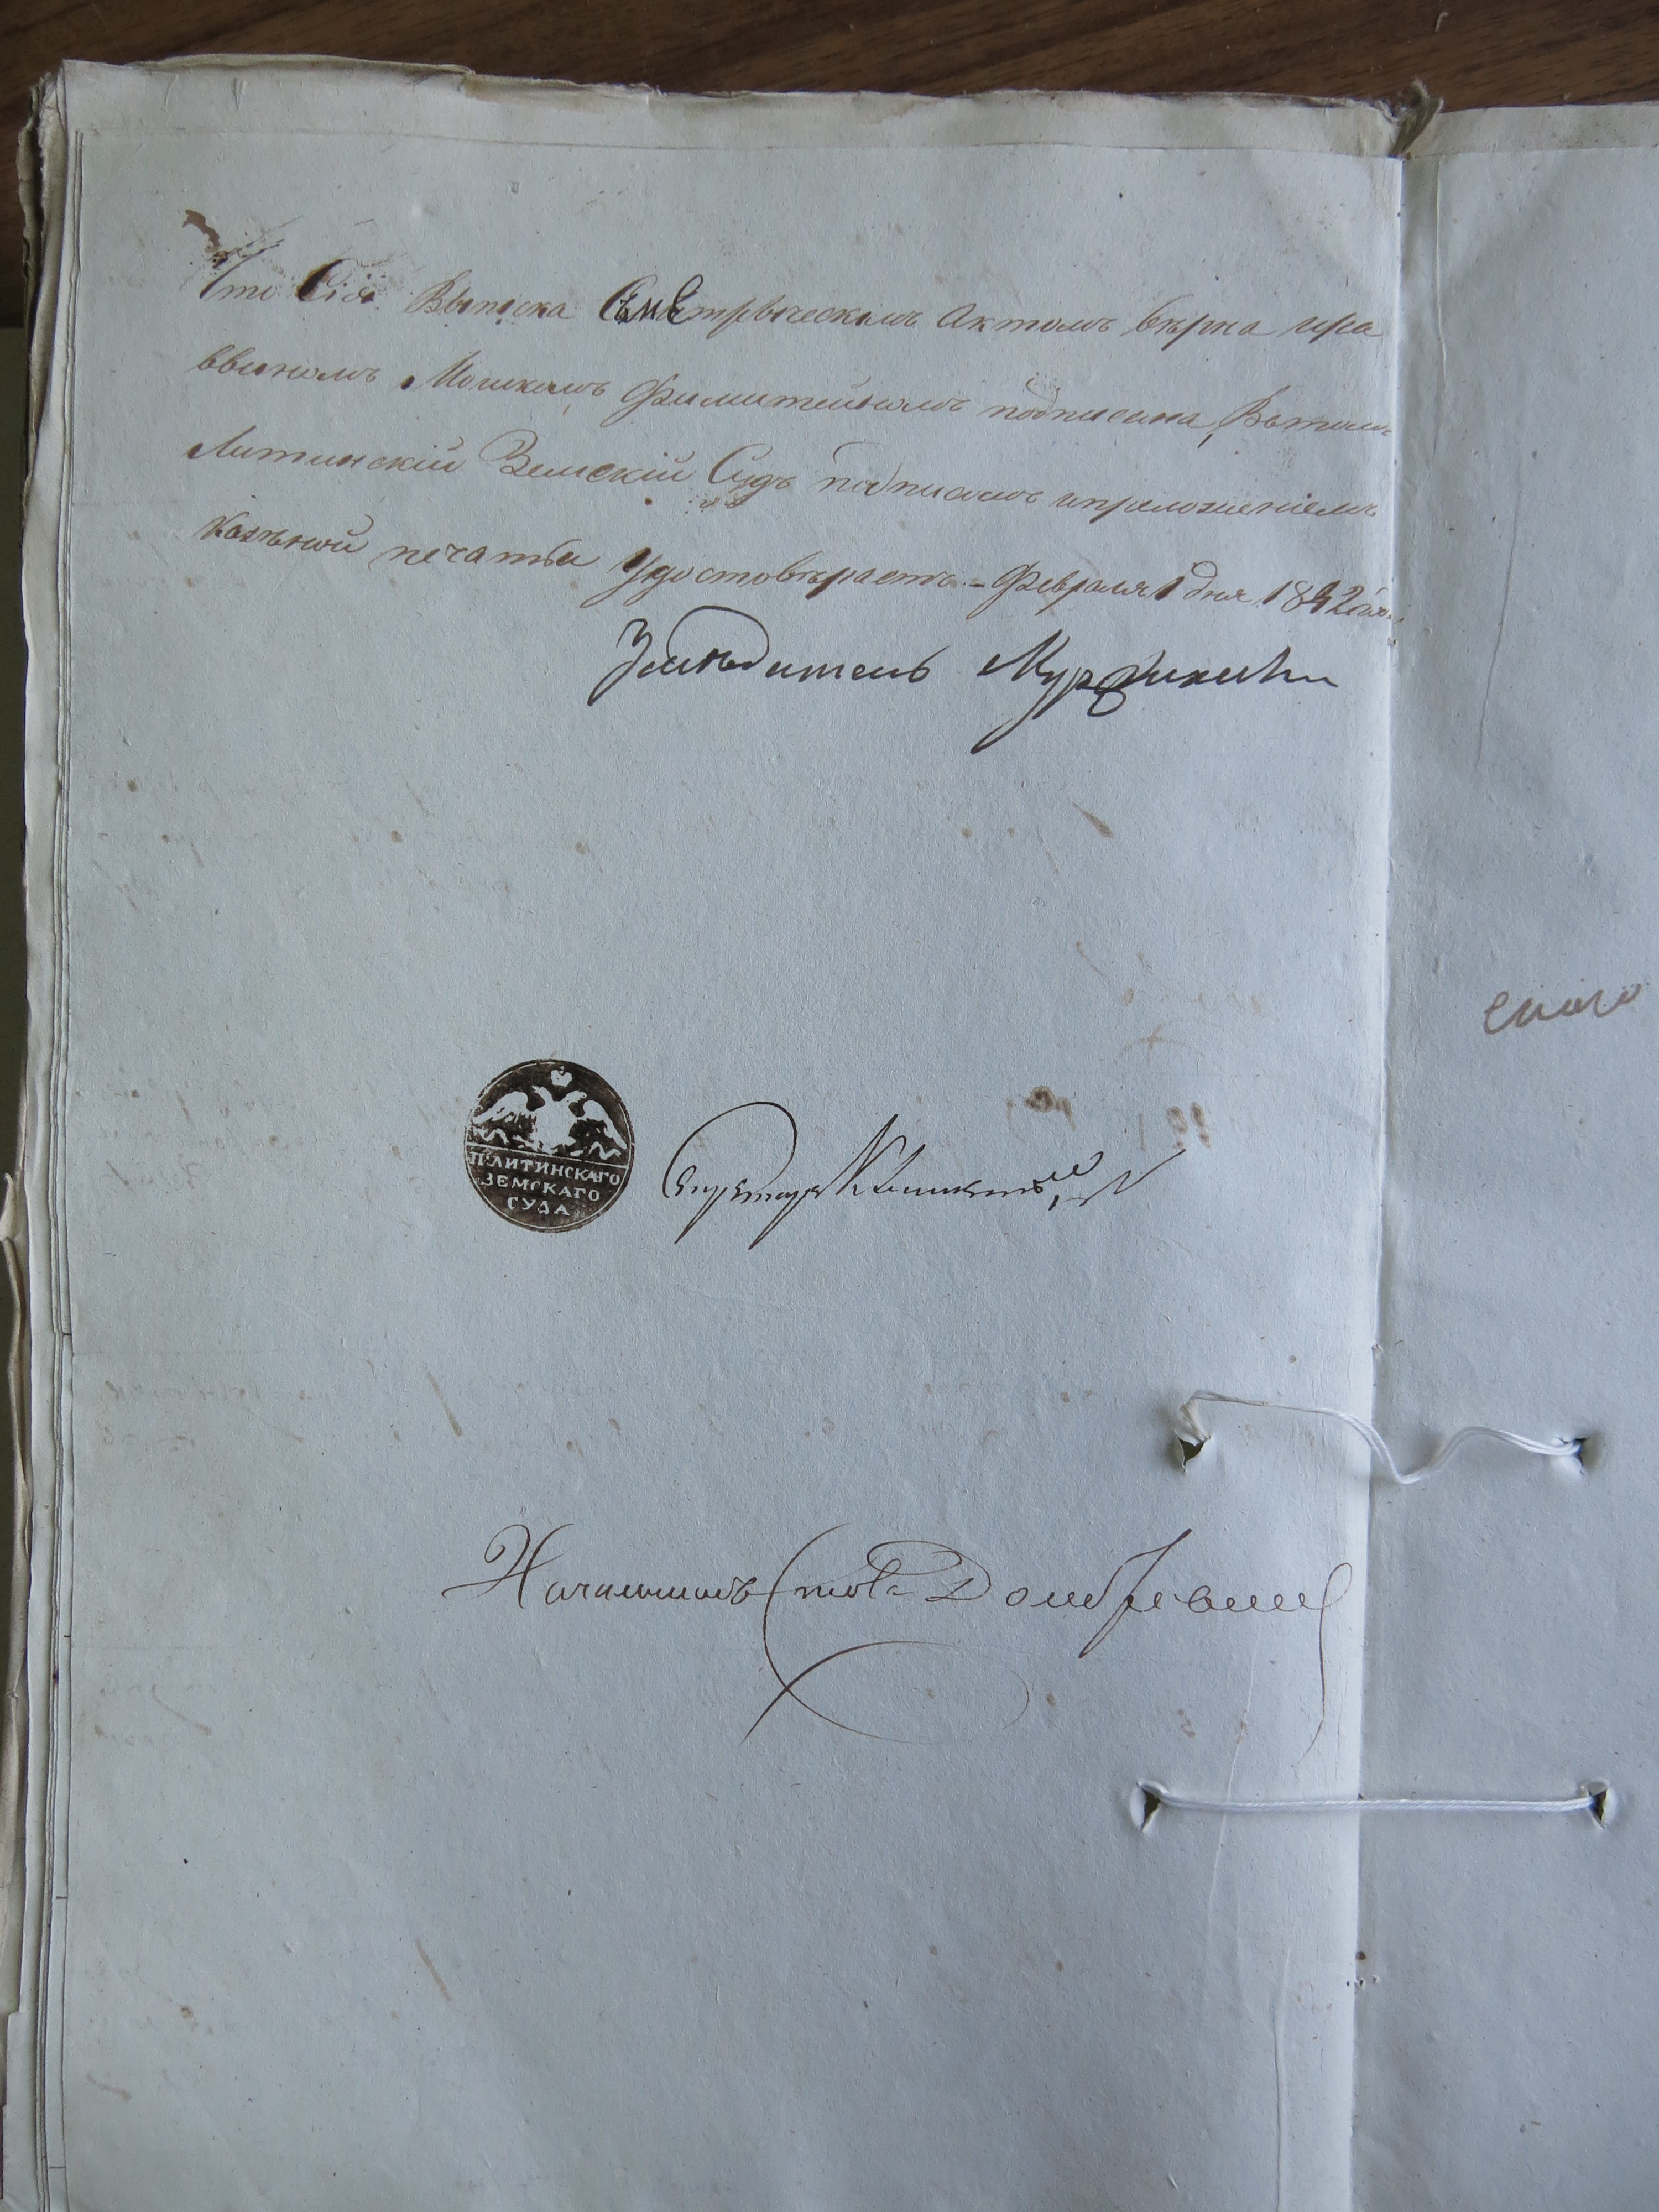 Что Сія Выписка Съ Метрическимъ Актомъ верна и ра
ввиномъ Мошкомъ подписана, Вътомъ
Литинскій Земскій Судъ подписомъ иприложеніемъ
Казенной печати Удостоверяетъ - Февраля 1 дня 1842 года
Заседатель
П. ЛИТИНСКАГО
ЗЕМСКАГО
СУДА
Секретарь
Начальникъ Стола Домбровский